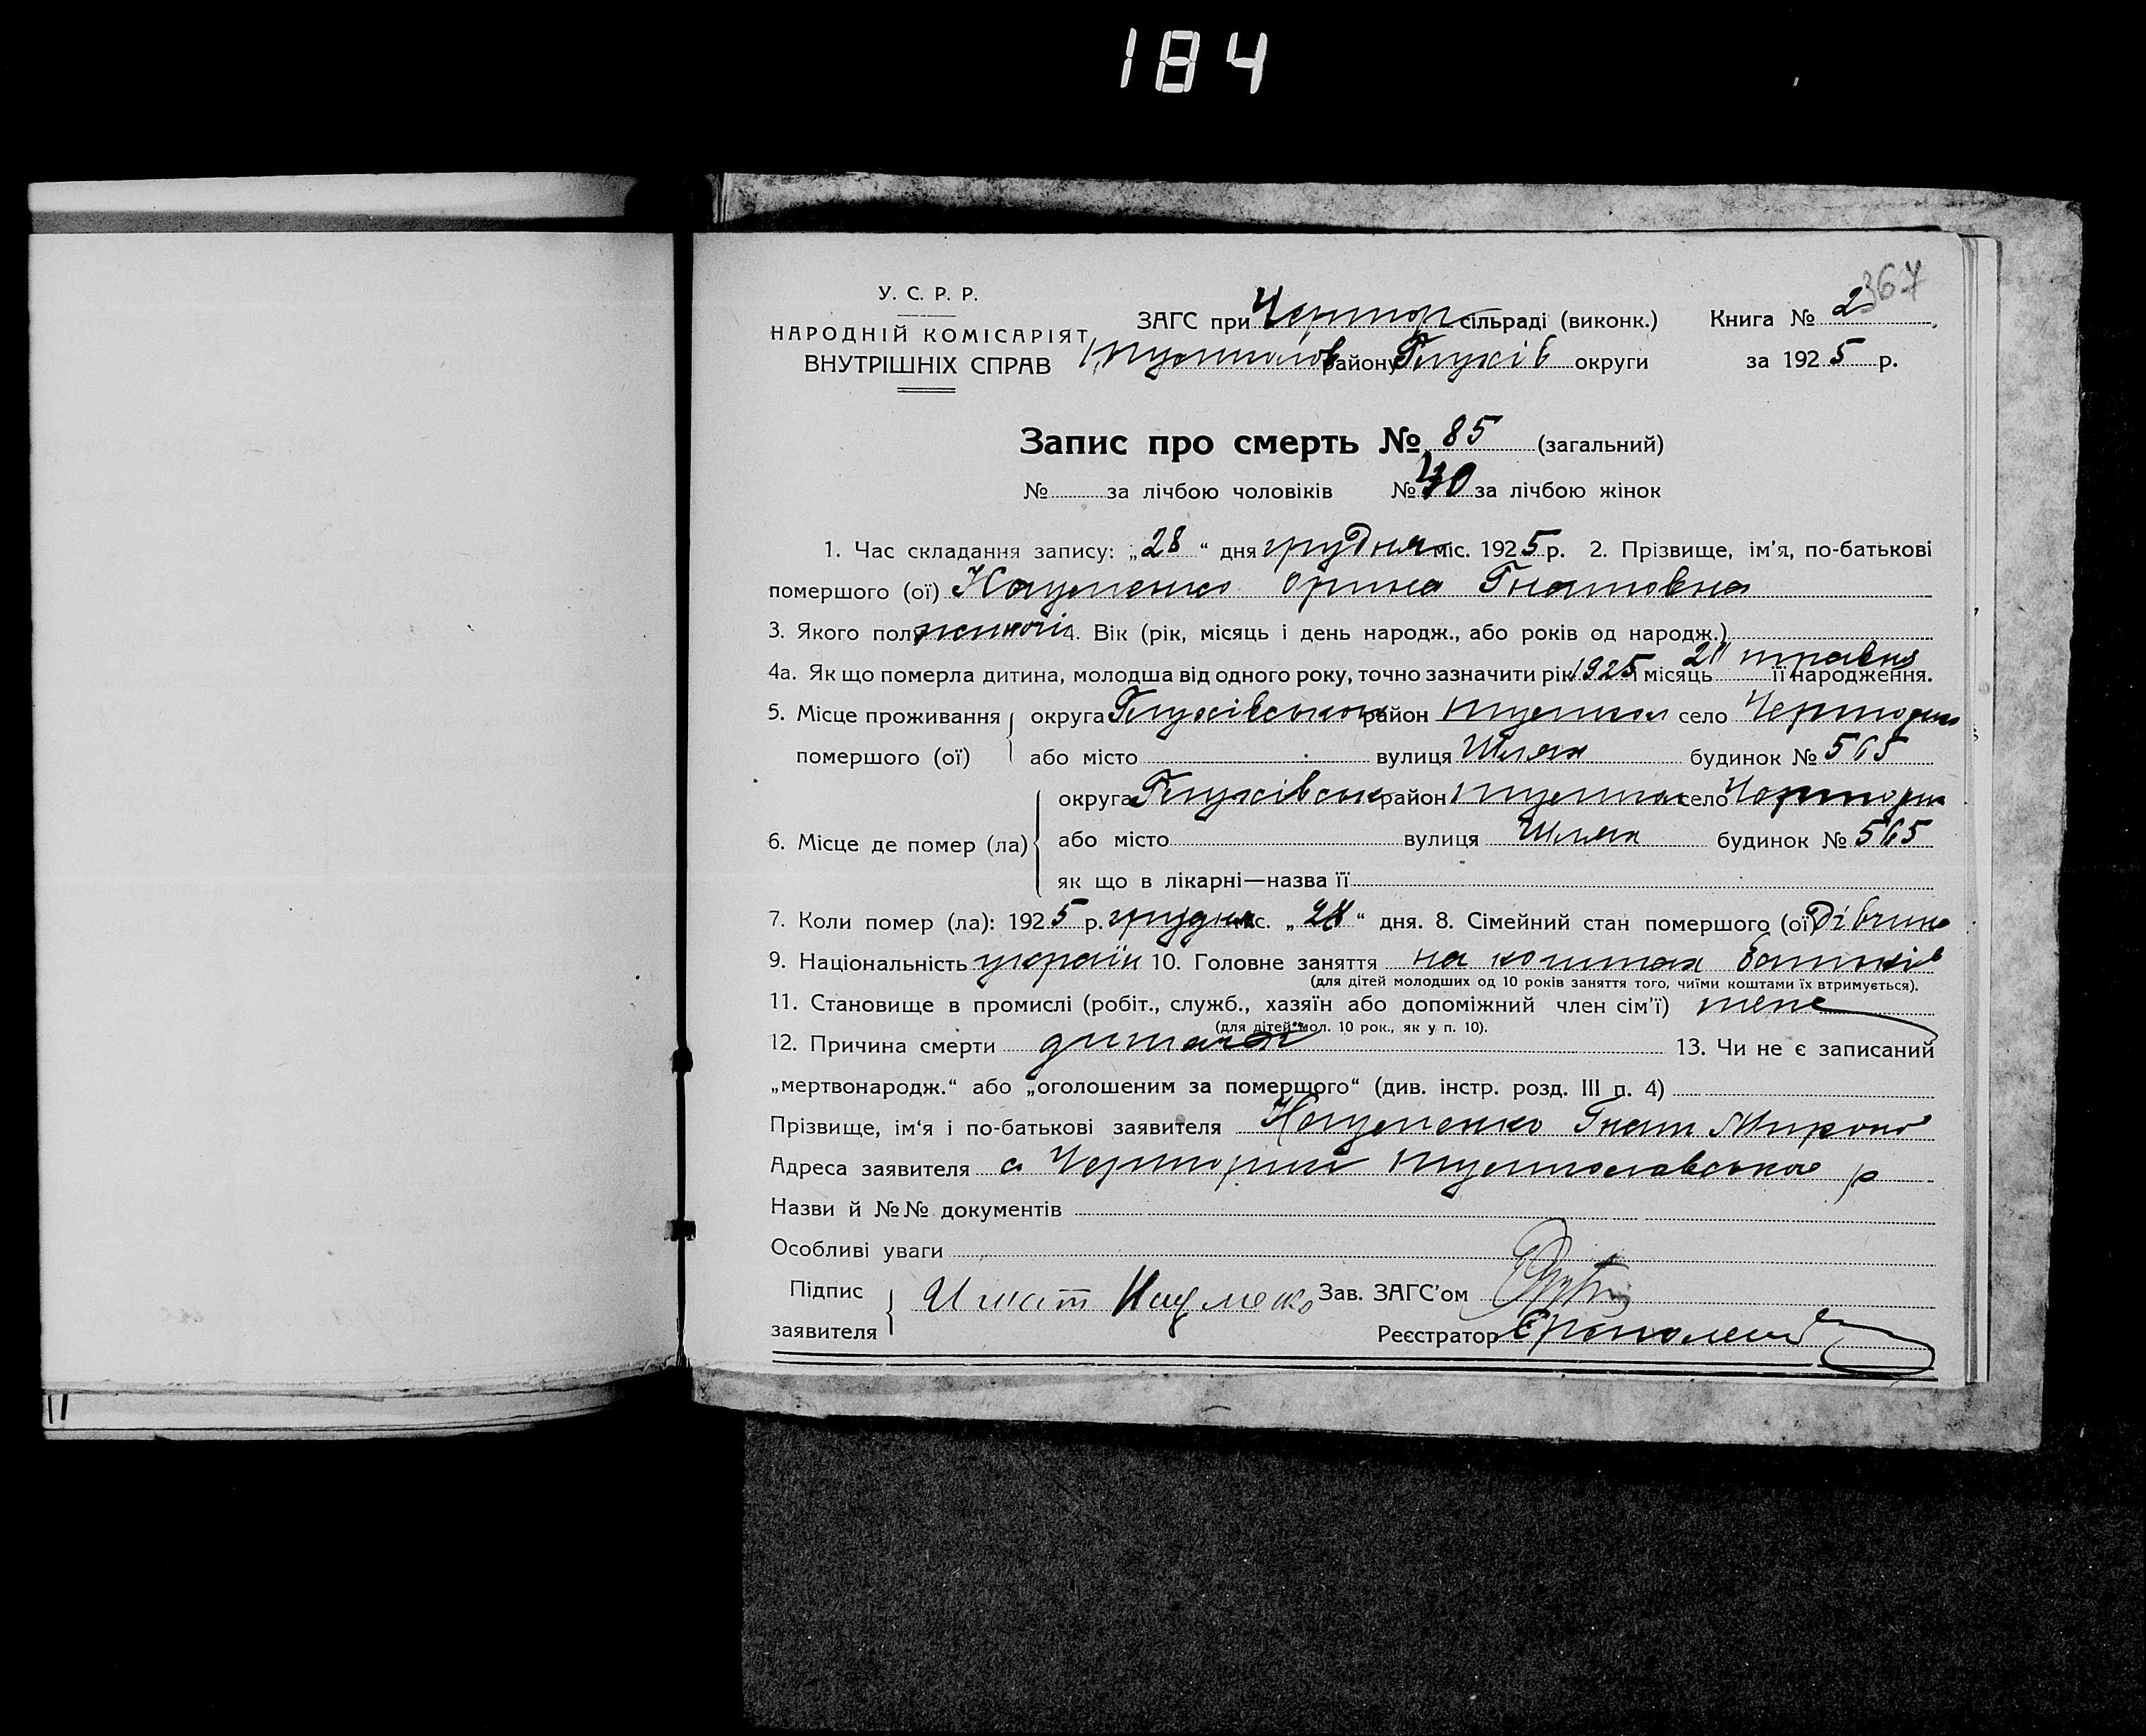 184
367
У. С. Р. Р.
НАРОДНІЙ КОМІСАРІЯТ
ВНУТРІШНІХ СПРАВ
ЗАГС при Чертор сільраді (виконк.) Книга № 2
району Глухів округи за 1925 р.
Запис про смерть № 85 (загальний)
№ за лічбою чоловіків № 40 за лічбою жінок
1. Час складання запису: „28“ дня грудня міс. 1925 р. 2. Прізвище, ім’я, по-батькові
помершого (ої) Науменко Орина Гнатовна
3. Якого пол жиночій 4. Вік (рік, місяць і день народж., або років од народж.)
4а. Як що померла дитина, молодша від одного року, точно зазначити рік 1925 і місяць травня її народження.
5. Місце проживання округа Глухівської район село Черториги
помершого (ої) або місто вулиця Шлях будинок № 565
округа Глухівськ район село Черториги
6. Місце де помер (ла) або місто вулиця Шлях будинок № 565
як що в лікарні—назва її
7. Коли помер (ла): 1925 р. грудня міс. „28“ дня. 8. Сімейний стан помершого (ої) Дівчина
9. Національність україн 10. Головне заняття на коштах батьків
(для дітей молодших од 10 років заняття того, чиїми коштами їх втримується).
11. Становище в промислі (робіт., служб., хазяїн або допоміжний член сім’ї) теж
(для дітей мол. 10 рок., як у п. 10).
12. Причина смерти 13. Чи не є записаний
„мертвонародж.“ або „оголошеним за помершого“ (див. інстр. розд. III п. 4)
Прізвище, ім’я і по-батькові заявителя Науменко Гнат Миронов
Адреса заявителя с Черториги р
Назви й №№ документів
Особливі уваги
Підпис
заявителя Игнат Науменко Зав. ЗАГС’ом
Реєстратор